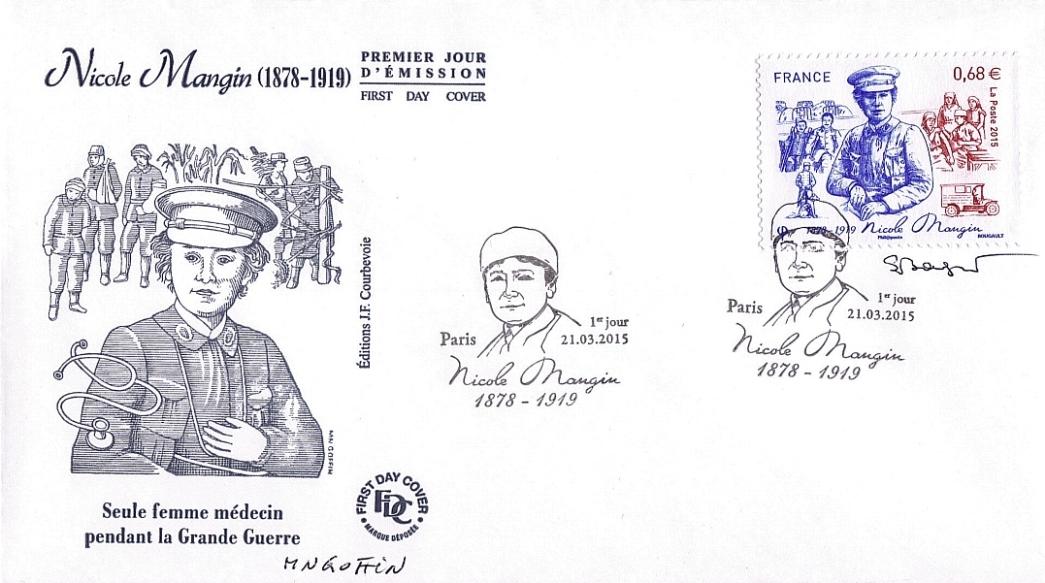 Nicole Mangin (1878-1919)
PREMIER JOUR
D'ÉMISSION
FIRST DAY COVER
FRANCE
0,68 €
La Poste 2015
1878-1919 Nicole Mangin
BOUGAULT
Éditions J.F. Courbevoie
MN GOFFIN
Paris
1er jour
21.03.2015
Nicole Mangin
1878 - 1919
Paris
1er jour
21.03.2015
Nicole Mangin
1878 - 1919
Seule femme médecin
pendant la Grande Guerre
FIRST DAY COVER
FDC
MARQUE DÉPOSÉE
MNGOFFIN